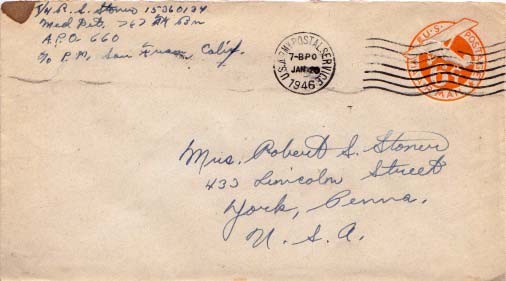 T/4 R. S. Stoner 15360134
Med Det, 767 TK Bn
A.P.O. 660
c/o P.M. San Fran Calif.
U.S. ARMY POSTAL SERVICE
7-BPO
JAN 20
1946
U.S. POSTAGE
AIR MAIL
6¢
Mrs. Robert S. Stoner
433 Lincoln Street
York, Penna.
U. S. A.